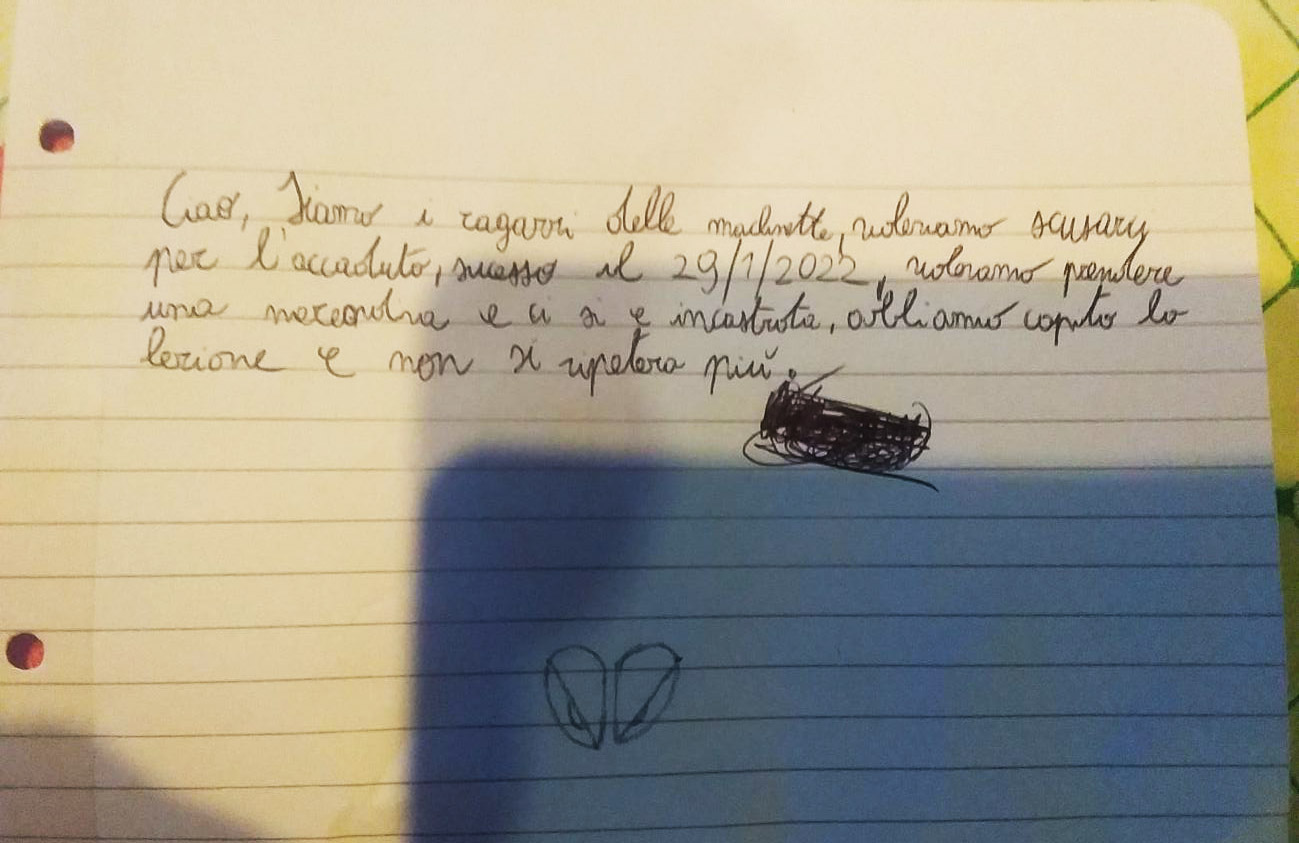 Ciao, Siamo i ragazzi delle machinette, volevamo scusarci
per l'accaduto, sucesso il 29/1/2022, volevamo prendere
una merendina e ci si e incastrata, abbiamo capito la
lezione e non si ripetera più.